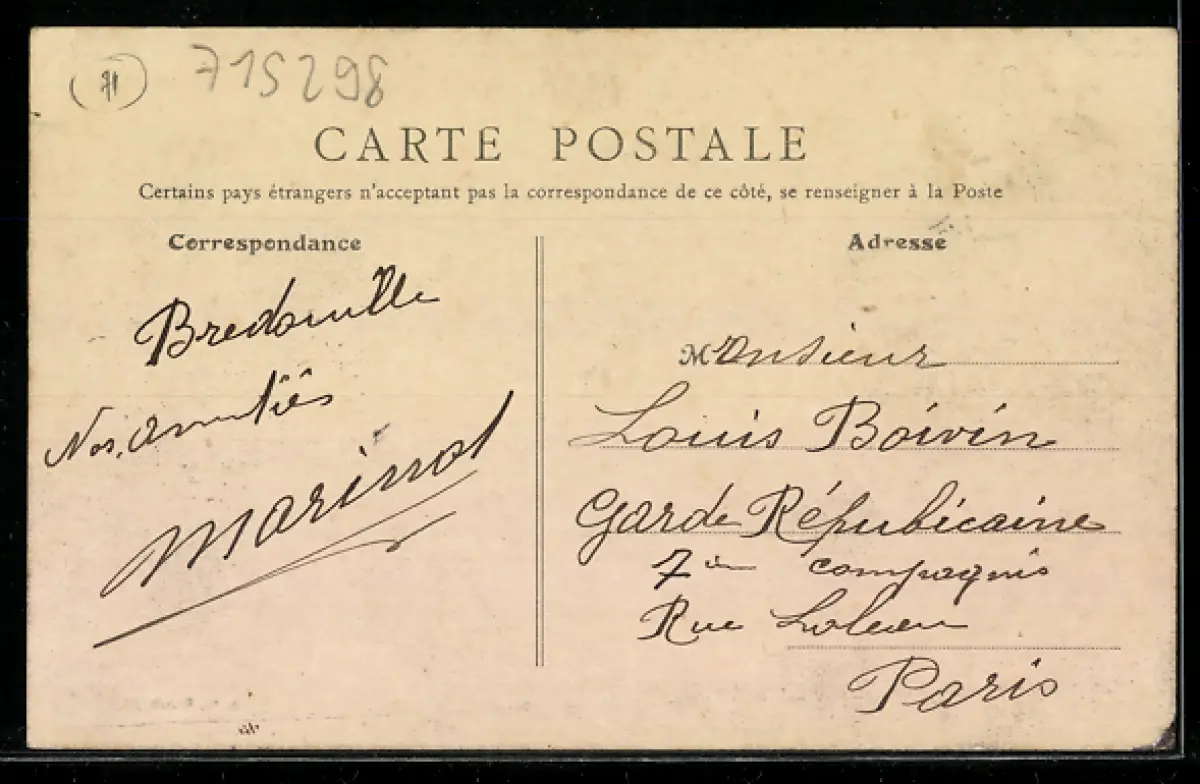 71
715298
CARTE POSTALE
Certains pays étrangers n'acceptant pas la correspondance de ce côté, se renseigner à la Poste
Correspondance
Adresse
Bredouille
Nos amitiés
Marinot
Monsieur
Louis Boivin
Garde Républicaine
7ème compagnie
Rue
Paris